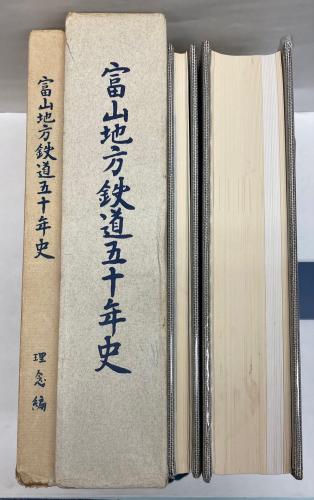 富山地方鉄道五十年史
理念編
富山地方鉄道五十年史